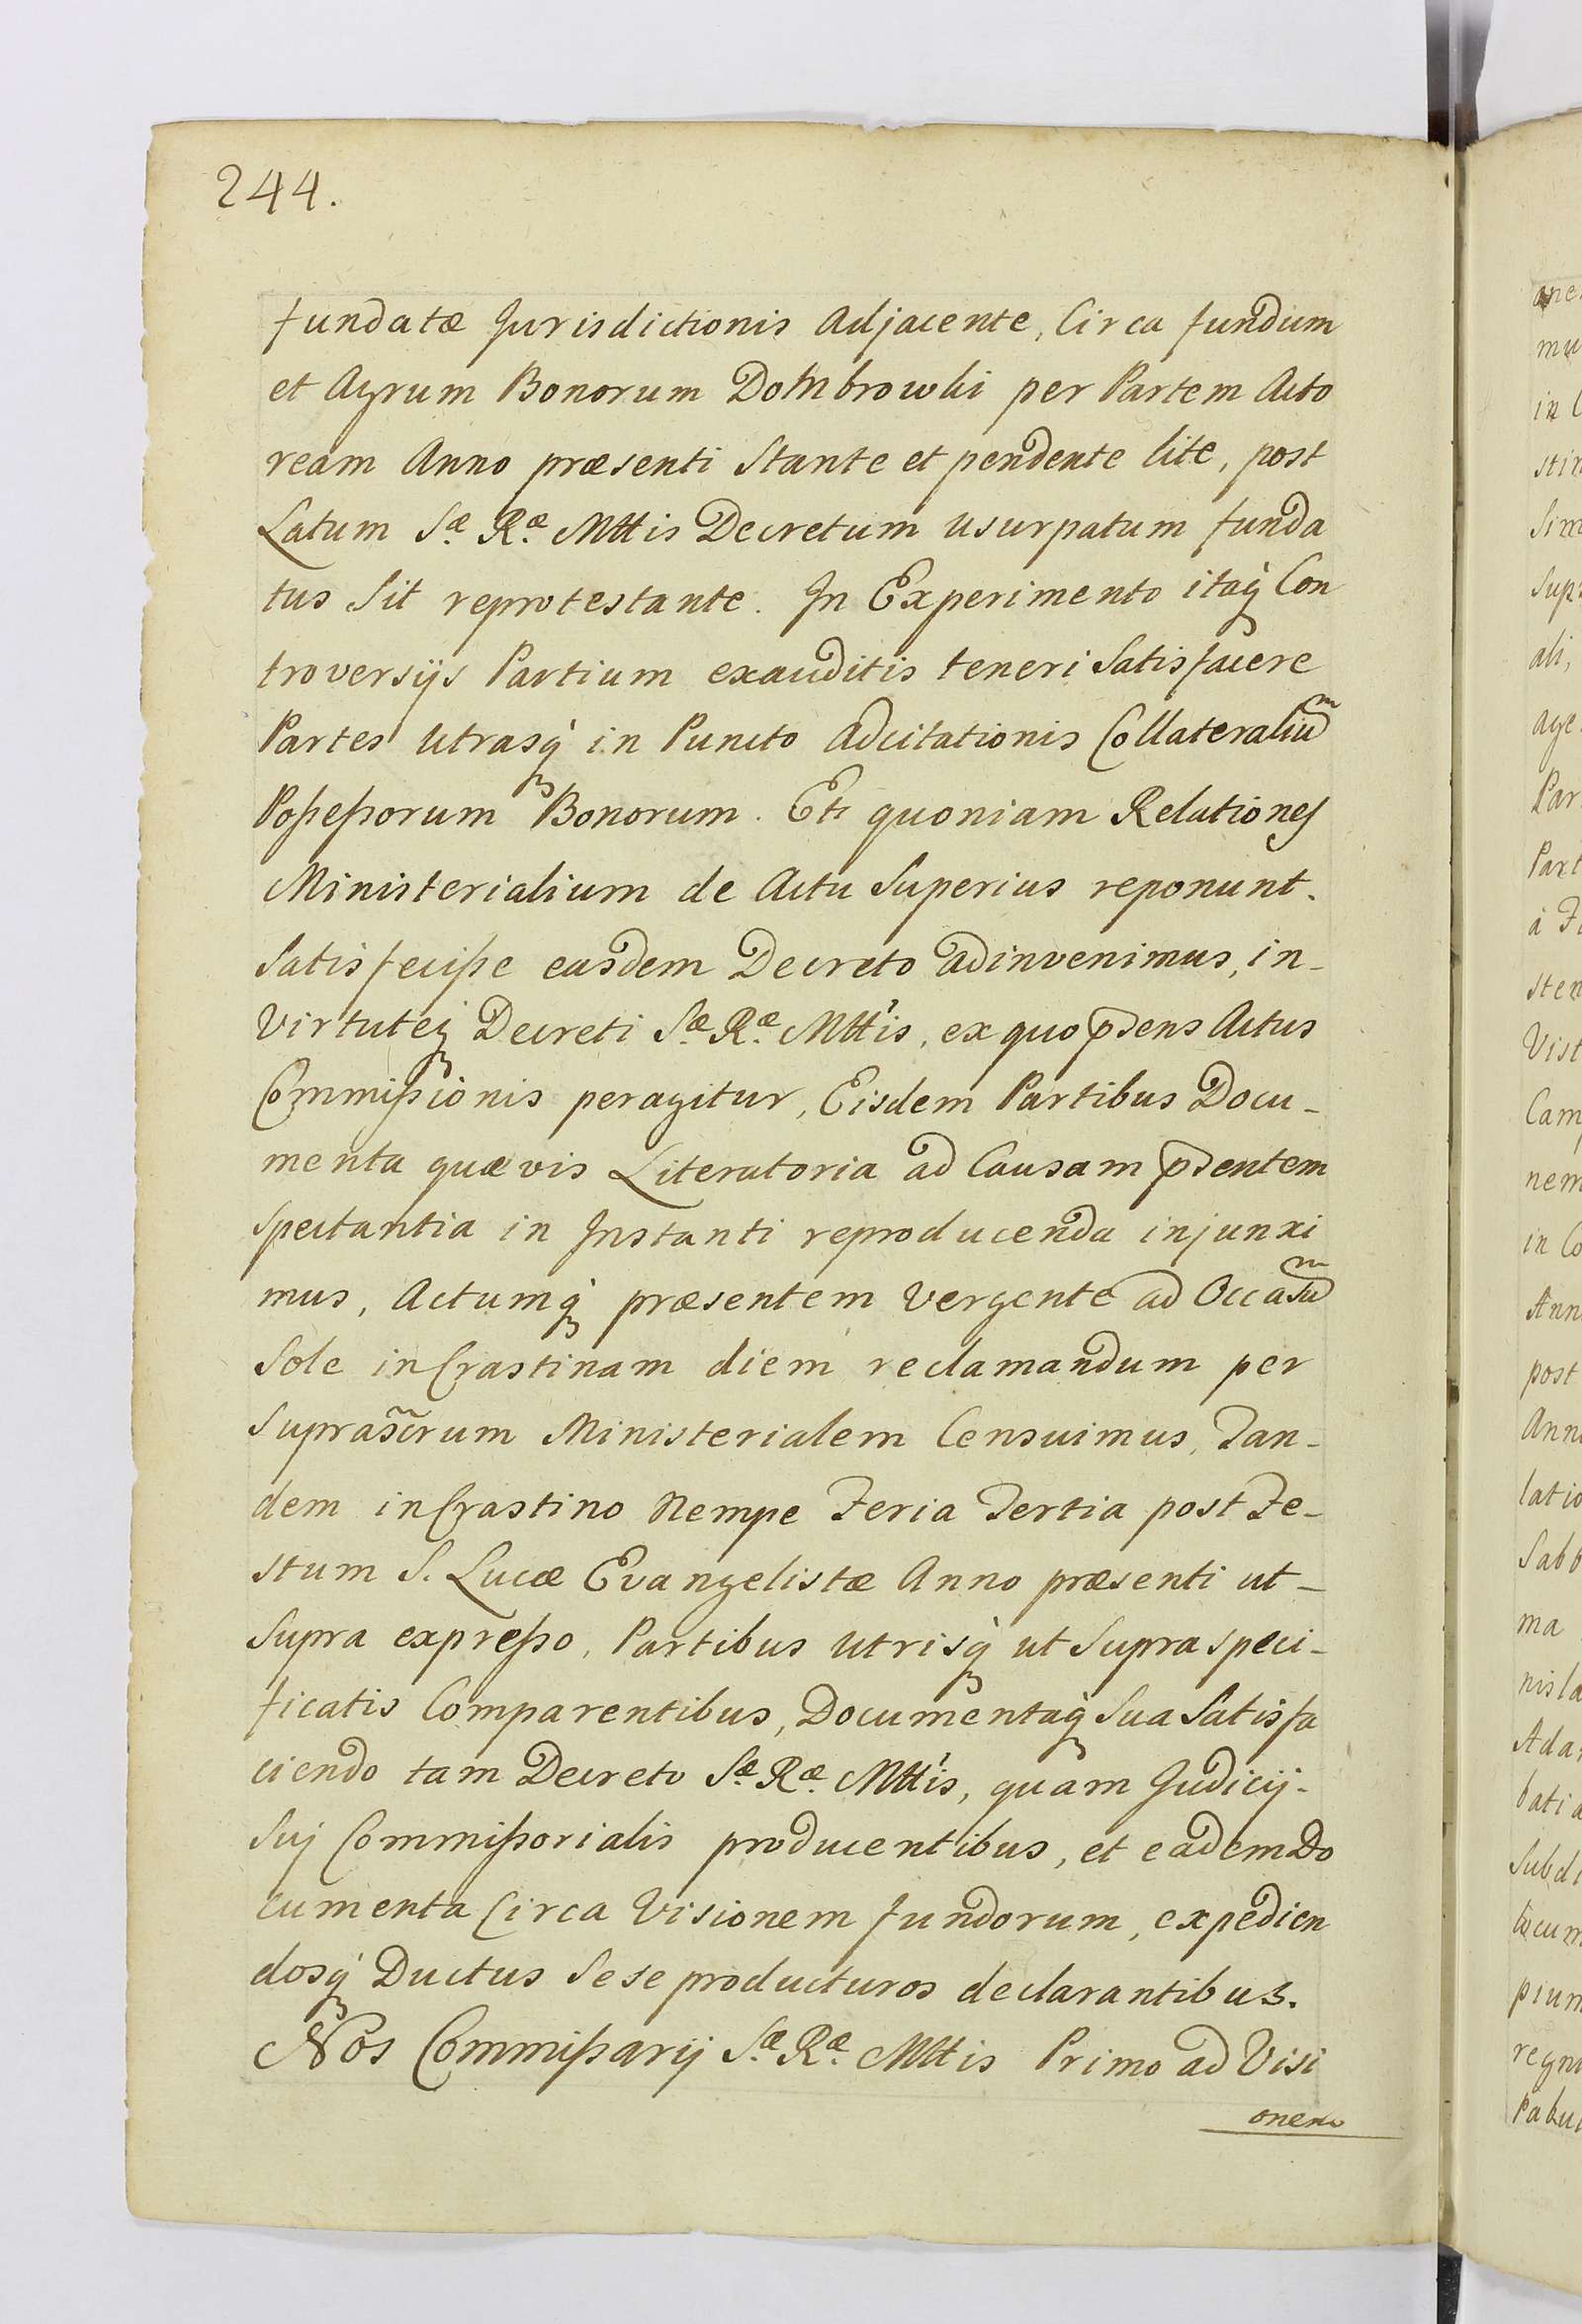 244.
fundatæ Jurisdictionis Adjacente, Circa fundum
et Agrum Bonorum Dombrowki per Partem Acto
ream Anno præsenti Stante et pendente lite, post
Latum Sæ Ræ Mttis Decretum usurpatum funda
tus Sit reprotestante. In Experimento itaq̀ Con
troversijs Partium exauditis teneri Satisfacere
Partes Utrasq̀ in Puncto Adcitationis Collateraliũ
Poßeßorum Bonorum. Et quoniam Relationes
Ministerialium de Actu Superius reponunt.
Satisfeciße easdem Decreto adinvenimus, in-
Virtuteq̀ Decreti Sæ Ræ Mttis, ex quo pñsens Actus
Commißionis peragitur, Eisdem Partibus Docu-
menta quævis Literatoria ad Causam pñsentem
Spectantia in Instanti reproducenda injunxi
mus, Actumq̀ præsentem Vergente ad Occasũ
Sole in Crastinam diem reclamandum per
Suprascr̃um Ministerialem Censuimus, Tan-
dem in Crastino Nempe Feria Tertia post Fe-
stum S. Lucæ Evangelistæ Anno præsenti ut-
Supra expreßo, Partibus Utrisq̀ ut Supra speci-
ficatis Comparentibus, Documentaq̀ Sua Satisfa
ciendo tam Decreto Sæ Ræ Mttis, quam Judicij-
Suj Commißorialis producentibus, et eadem Do
cumenta Circa Visionem fundorum, expedien
dosq̀ Ductus Sese producturos declarantibus.
Nos Commißarij Sæ Ræ Mttis Primo ad Visi
onem